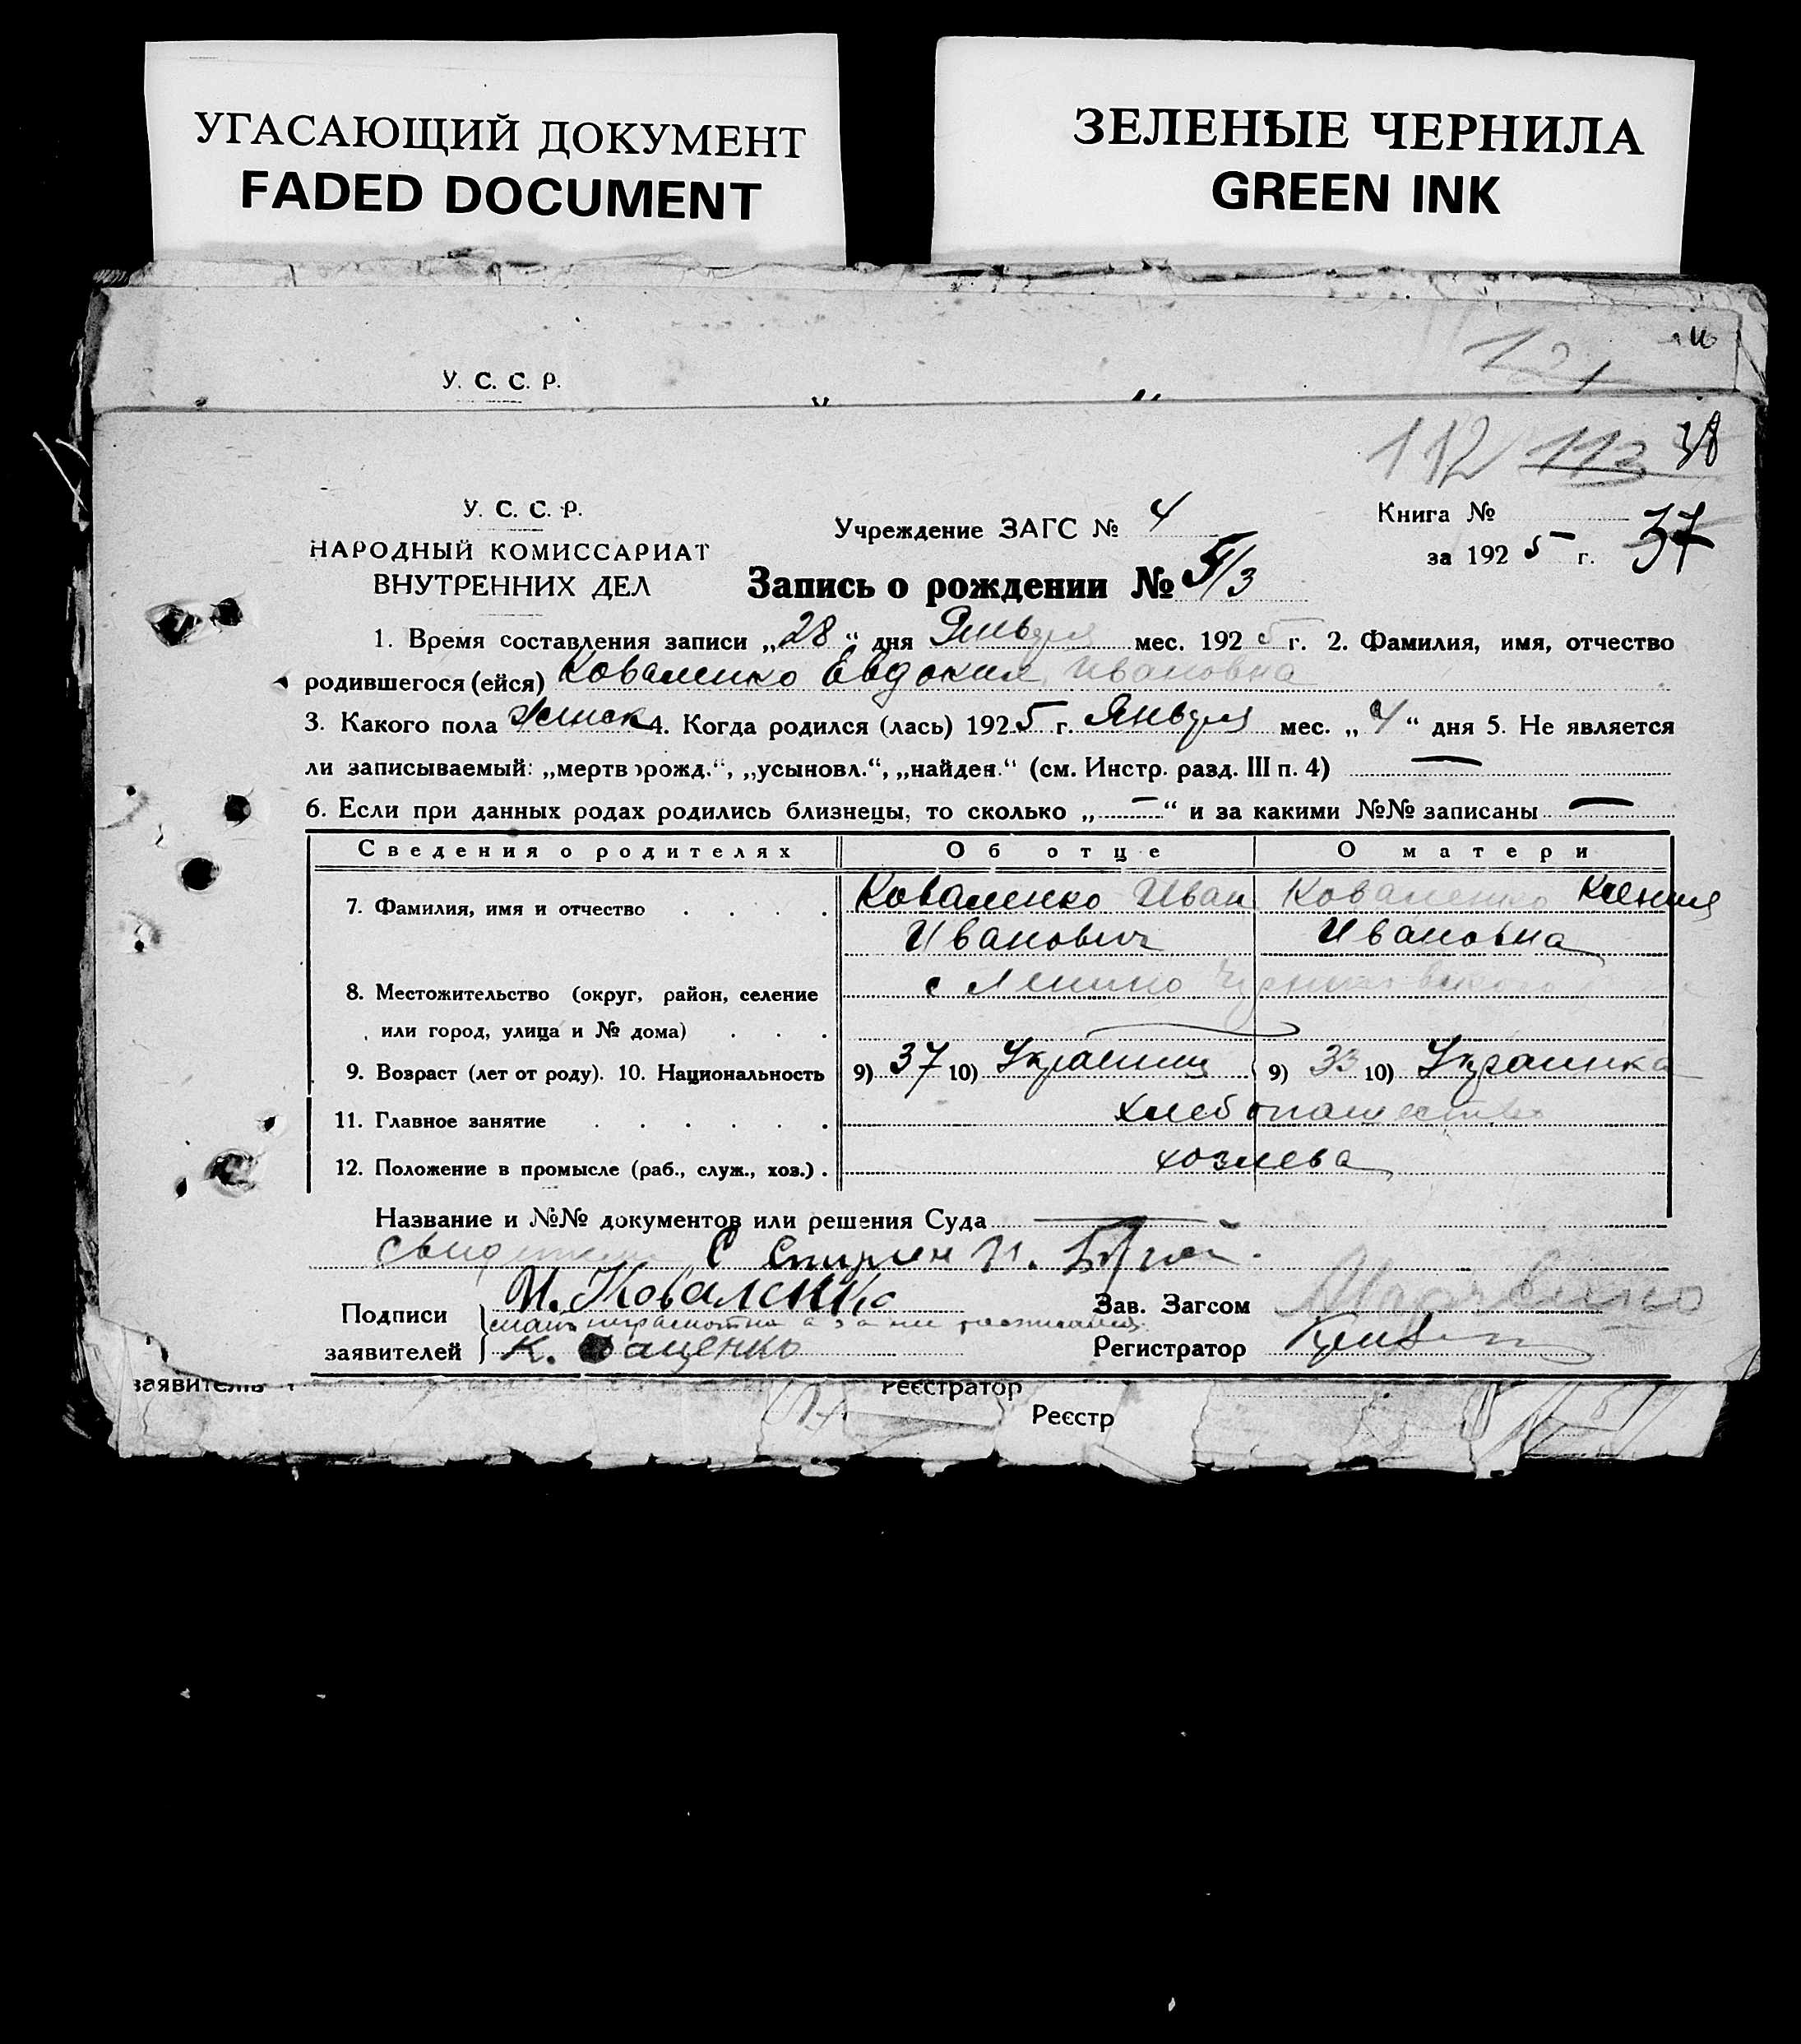 УГАСАЮЩИЙ ДОКУМЕНТ
FADED DOCUMENT
ЗЕЛЕНЫЕ ЧЕРНИЛА
GREEN INK
У. С. С. Р.
121
112 113 38
У. С. С. Р.
НАРОДНЫЙ КОМИССАРИАТ
ВНУТРЕННИХ ДЕЛ
Учреждение ЗАГС № 4
Книга № 37
за 1925 г.
Запись о рождении № 5/3
1. Время составления записи „28“ дня Января мес. 1925 г. 2. Фамилия, имя, отчество
родившегося (ейся) Коваленко Евдокия Ивановна
3. Какого пола Женск 4. Когда родился (лась) 1925 г. Января мес. „4“ дня 5. Не является
ли записываемый: „мертворожд.“, „усыновл.“, „найден.“ (см. Инстр. разд. III п. 4) —
6. Если при данных родах родились близнецы, то сколько „—“ и за какими №№ записаны —
Сведения о родителях Об отце О матери
7. Фамилия, имя и отчество . . . . Коваленко Иван Коваленко Ксения
Иванович Ивановна
8. Местожительство (округ, район, селение с Ленино
или город, улица и № дома) . . .
9. Возраст (лет от роду). 10. Национальность 9) 37 10) Украинец 9) 33 10) Украинка
11. Главное занятие . . . . . . хлебопашество
12. Положение в промысле (раб., служ., хоз.) . хозяева
Название и №№ документов или решения Суда —
С
Подписи И. Коваленко
Зав. Загсом
мать неграмотна а за нее
заявителей К. Ващенко
Регистратор
заявитель
Реєстратор
Реєстр